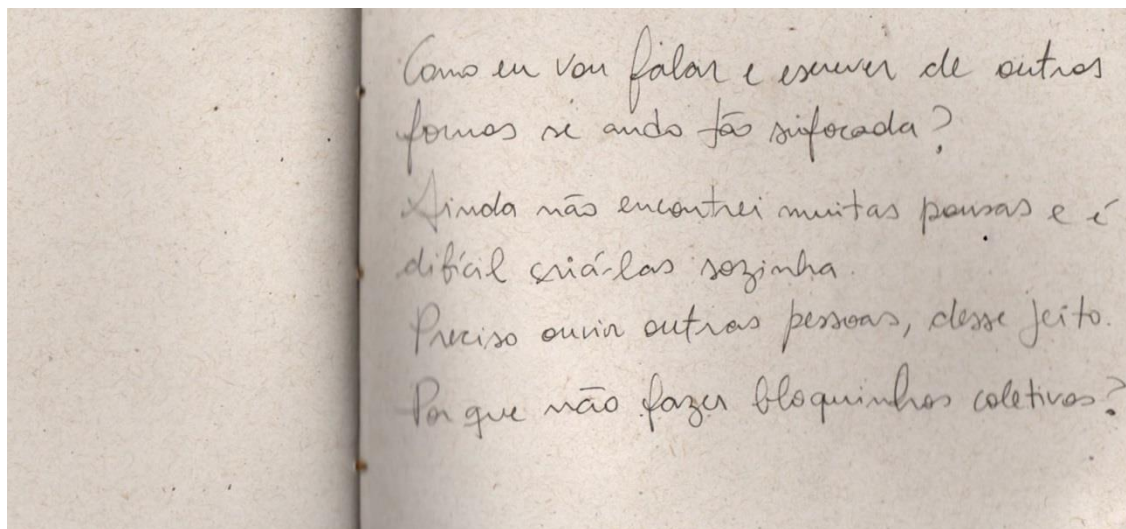 Como eu vou falar e escrever de outras
formas se ando tão sufocada?
Ainda não encontrei muitas pausas e é
difícil criá-las sozinha.
Preciso ouvir outras pessoas, desse jeito.
Por que não fazer bloquinhos coletivos?